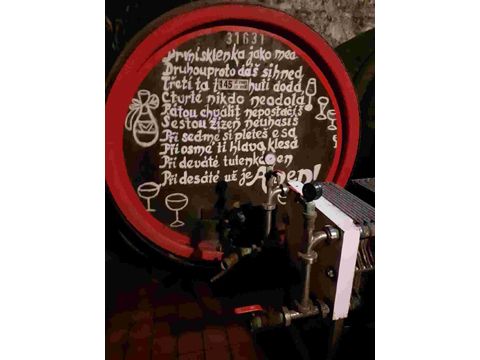 31631
První sklenka jako med
Druhou proto dáš si hned
Třetí ta t chuti dodá
Čtvrté nikdo neodolá
Pátou chválit nepostačíš
Šestou žízeň neuhasíš
Při sedmé si pleteš e sa
Při osmé ti hlava klesá
Při deváté tulenká en
Při desáté už je Amen!